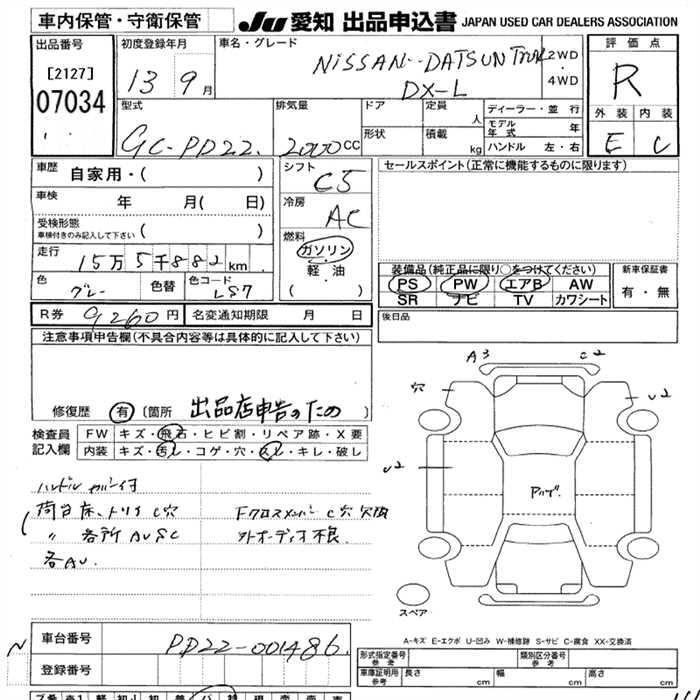 車内保管・守衛保管
JU 愛知 出品申込書 JAPAN USED CAR DEALERS ASSOCIATION
出品番号
[2127]
07034
初度登録年月
13 9月
車名・グレード
NISSAN DATSUN Truk
DX-L
2WD
・
4WD
評価点
R
外装 内装
E C
型式
GC-PD22.
排気量
2000cc
ドア
定員
人
形状
積載
kg
ディーラー・並行
モデル年式 年
ハンドル 左・右
車歴
自家用・( )
車検
年 月( 日)
受検形態
車検付きのみ記入して下さい ( )
走行
15万5千882km
色
グレー
色替
色コード
LS7
シフト
C5
冷房
AC
燃料
ガソリン
・
軽・油
( ・ )
セールスポイント(正常に機能するものに限ります)
装備品(純正品に限り○をつけてください)
PS PW エアB AW
SR ナビ TV カワシート
新車保証書
有・無
R券 9,260円 名変通知期限 月 日
後日品
注意事項申告欄(不具合内容等は具体的に記入して下さい)
修復歴 有 〔箇所 出品店申告のため 〕
検査員
記入欄
FW キズ・飛石・ヒビ割・リペア跡・X要
内装 キズ・汚れ・コゲ・穴・スレ・キレ・破し
ハンドルカバー付
荷台床、トリイC穴
〃 各所AUSC
各AU
FクロスメンバーC穴欠損
外オーディオ不良
A3
C2
穴
U2
U2
アゲ
スペア
A-キズ E-エクボ U-凹み W-補修跡 S-サビ C-腐食 XX-交換済
N
車台番号
PD22-001486
登録番号
形式指定番号
参考
類別区分番号
参考
車庫証明記載
参考
長さ cm 幅 cm 高さ cm